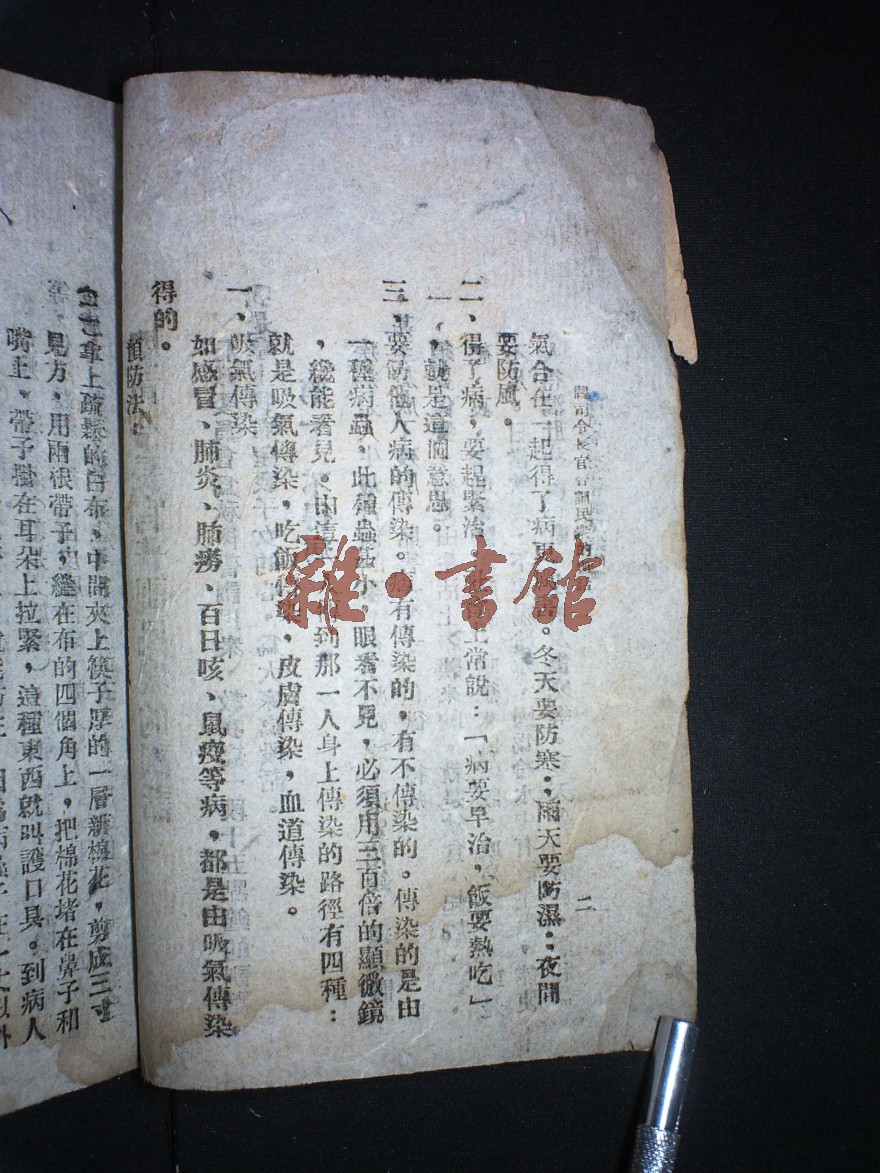 閻司令長官告諭民衆
二
氣合在一起得了病更。冬天要防寒；雨天要防濕；夜間
要防風。
二、得了病，要趕緊治。常說：「病要早治，飯要熱吃」
，就是這個意思。
三、要防他人病的傳染。病有傳染的，有不傳染的。傳染的是由
一種病蟲，此種蟲甚小，眼看不見，必須用三百倍的顯微鏡
，纔能看見。由這到那一人身上傳染的路徑有四種：
就是吸氣傳染，吃飯傳染，皮膚傳染，血道傳染。
一、吸氣傳染
如感冒、肺炎、肺癆、百日咳、鼠疫等病，都是由吸氣傳染
得的。
預防法：
拿上疏鬆的白布，中間夾上筷子厚的一層新棉花，剪成三寸
見方，用兩根帶子，縫在布的四個角上，把棉花堵在鼻子和
嘴上，帶子掛在耳朵上拉緊，這種東西就叫護口具。到病人
雜·書館